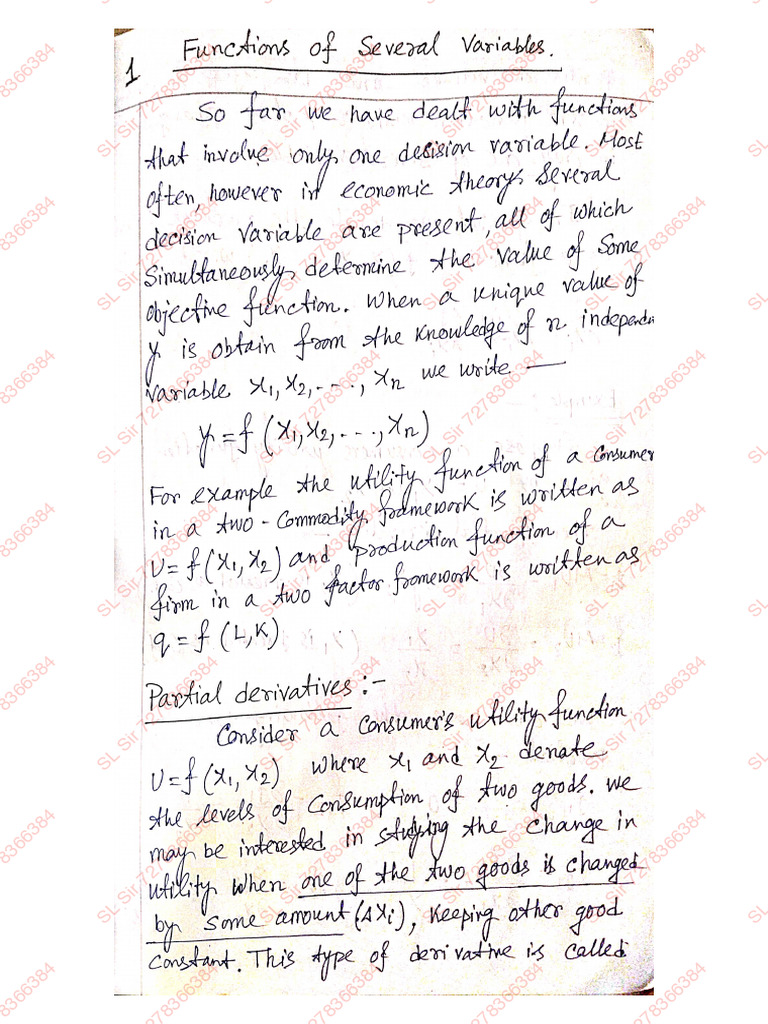 1
Functions of Several Variables.
So far we have dealt with functions
that involve only one decision variable. Most
often, however in economic theory several
decision variable are present, all of which
simultaneously determine the value of some
objective function. When a unique value of
y is obtain from the knowledge of n independen
variable x₁, x₂, ..., xₙ we write —
y = f (x₁, x₂, ..., xₙ)
For example the utility function of a consumer
in a two-commodity framework is written as
U = f (x₁, x₂) and production function of a
firm in a two factor framework is written as
q = f (L, K)
Partial derivatives :-
Consider a consumer's utility function
U = f (x₁, x₂) where x₁ and x₂ denate
the levels of consumption of two goods. we
may be interested in studying the change in
utility when one of the two goods is changed
by some amount (Δxᵢ), keeping other good
constant. This type of derivative is called
SL Sir 7278366384